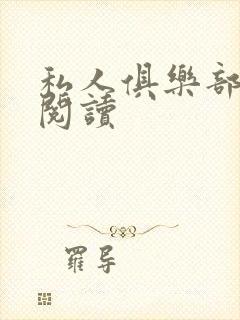 私人俱樂部
閱讀
羅导